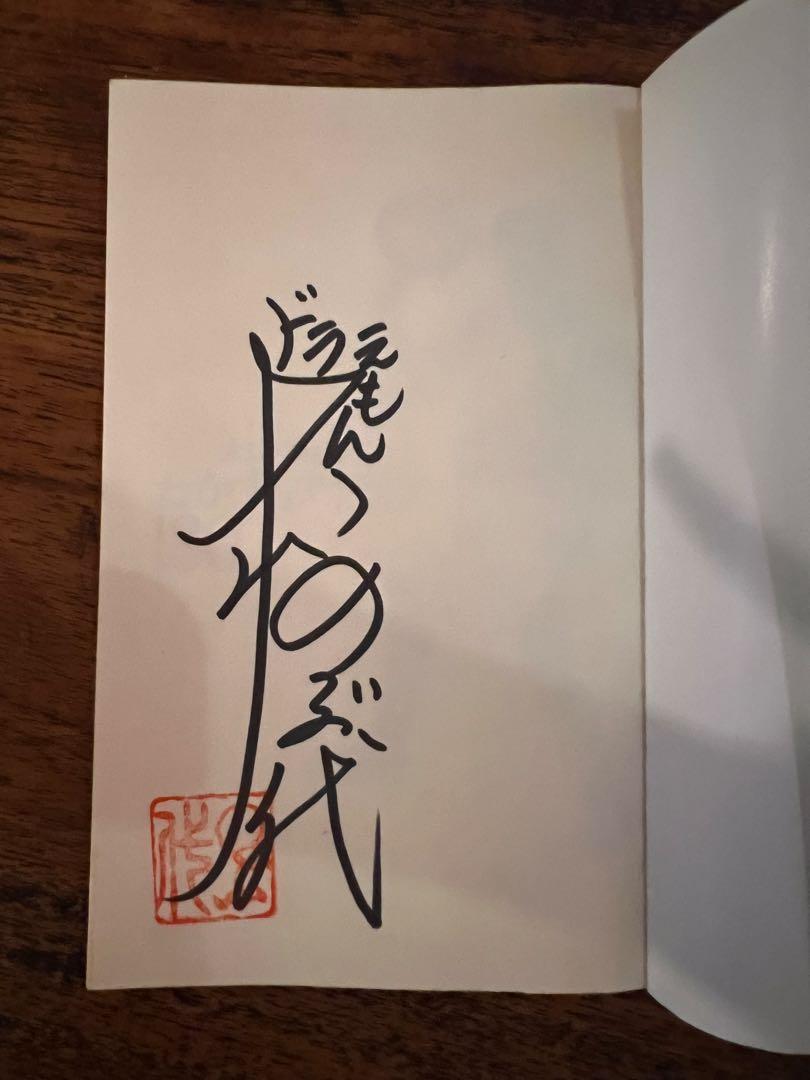 ドラえもん
大山のぶ代